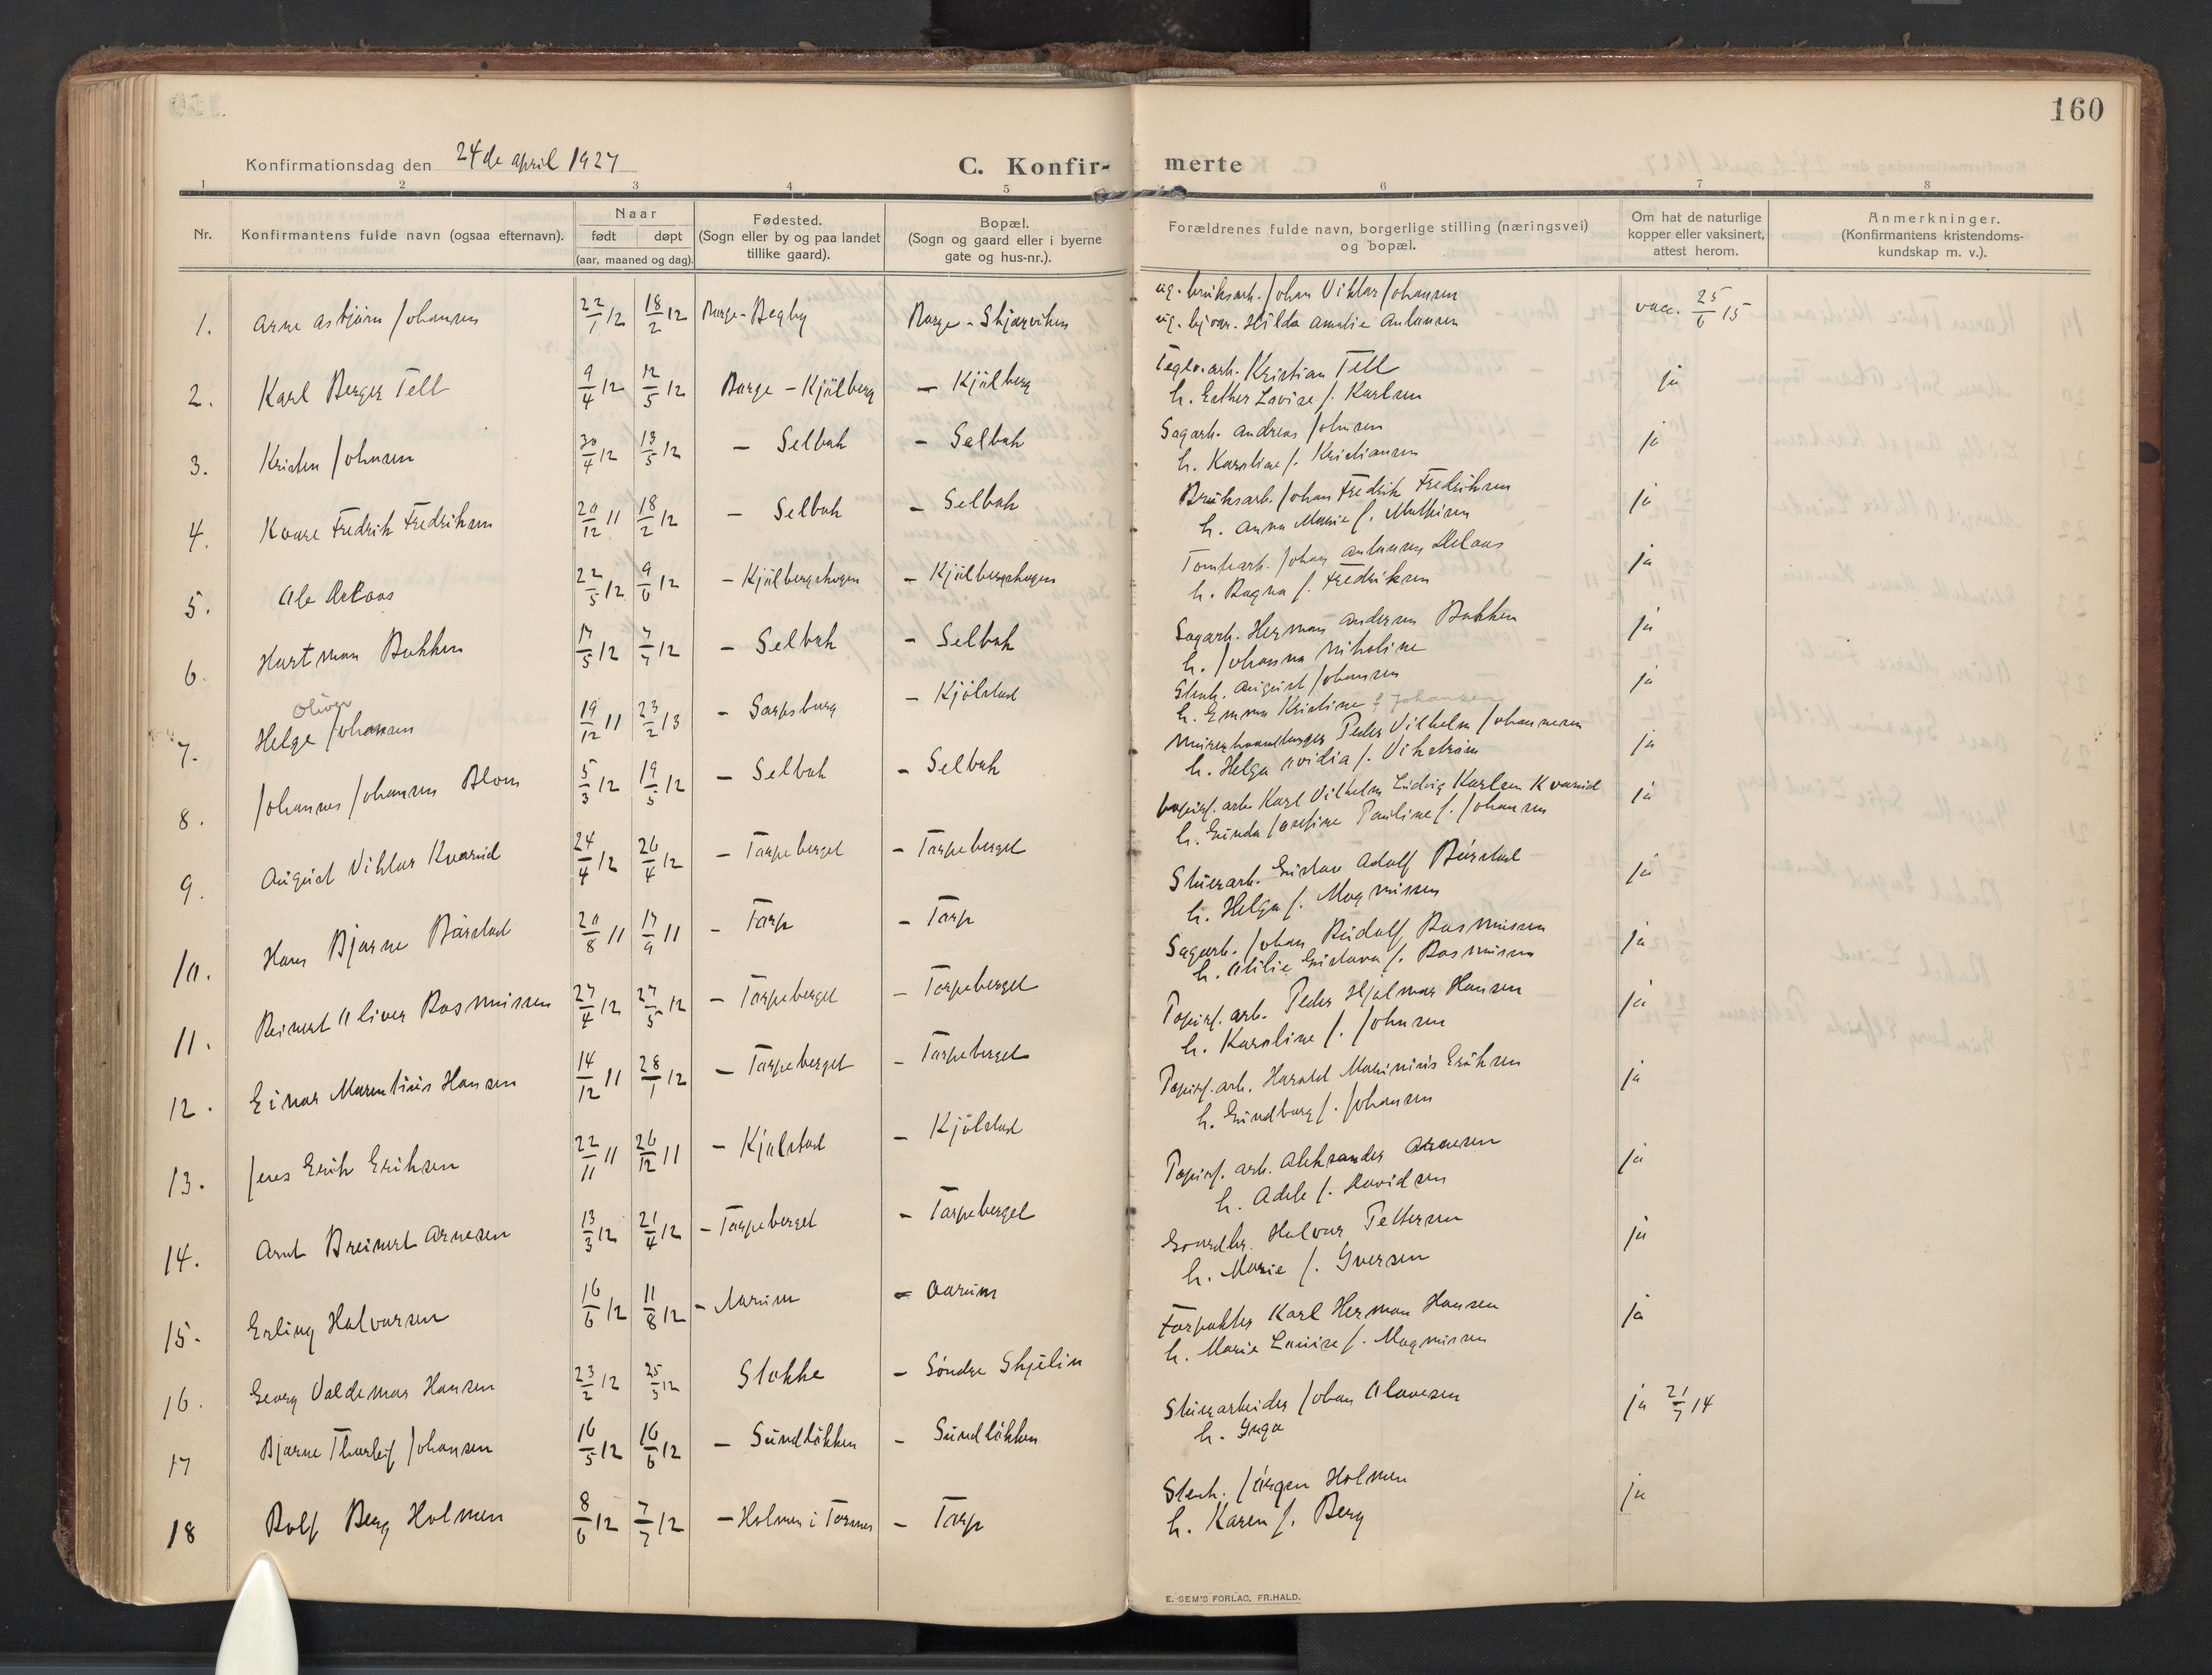 160
Konfirmationsdag den 24de april 1927
C. Konfir- merte
1 2 3 4 5 6 7 8
Nr.
Konfirmantens fulde navn (ogsaa efternavn).
Naar
født døpt
(aar, maaned og dag).
Fødested.
(Sogn eller by og paa landet
tillike gaard).
Bopæl.
(Sogn og gaard eller i byerne
gate og hus-nr.).
Forældrenes fulde navn, borgerlige stilling (næringsvei)
og bopæl.
Om hat de naturlige
kopper eller vaksinert,
attest herom.
Anmerkninger.
(Konfirmantens kristendoms-
kundskap m. v.).
1. Arne Asbjørn Johansen 22/1 12 18/2 12 Borge - Begby Borge - Skjærviken ug. bruksarb. Johan Viktor Johansen vacc. 25/6 15
ug. Hilda Amalie Antonsen
2. Karl Berger Tell 9/4 12 12/5 12 Borge - Kjølberg - Kjølberg Teglv.arb. Kristian Tell ja
h. Esther Lovise f. Karlsen
3. Kristen Johnsen 30/4 12 13/5 12 - Selbak - Selbak Sagarb. Andreas Johnsen ja
h. Karoline f. Kristiansen
4. Kaare Fredrik Fredriksen 20/12 11 18/2 12 - Selbak - Selbak Bruksarb. Johan Fredrik Fredriksen ja
h. Anna Marie f. Mathisen
5. Ole Delaas 22/5 12 9/6 12 - Kjølbergskogen - Kjølbergskogen Tomtearb. Johan Antonsen Delaas ja
h. Ragna f. Fredriksen
6. Hartman Bakken 17/5 12 7/7 12 - Selbak - Selbak Sagarb. Herman Andersen Bakken ja
h. Johanna Nikoline
Oliver
7. Helge Johansen 19/12 11 23/2 13 - Sarpsborg - Kjølstad Stenh. August Johansen ja
h. Emma Kristine f Johansen
8. Johannes Johansen Blom 5/3 12 19/5 12 - Selbak - Selbak Murerhaandlanger Peder Vilhelm Johannesen ja
h. Helga Ovidia f. Vikstrøm
9. August Viktor Kvarud 24/4 12 26/4 12 - Torpeberget - Torpeberget Papirf. arb. Karl Vilhelm Ludvig Karlsen Kvarud ja
h. Gunda Josefine Pauline f. Johansen
10. Hans Bjarne Børstad 20/8 11 17/9 11 - Torp - Torp Stuerarb. Gustav Adolf Børstad ja
h. Helga f. Magnussen
11. Reinert Oliver Rasmussen 27/4 12 27/5 12 - Torpeberget - Torpeberget Sagarb. Johan Rudolf Rasmussen ja
h. Otilie Gustava f. Rasmussen
12. Einar Marentius Hansen 14/12 11 28/1 12 - Torpeberget - Torpeberget Papirf. arb. Peder Hjalmar Hansen ja
h. Karoline f. Johnsen
13. Jens Erik Eriksen 22/11 11 26/12 11 - Kjølstad - Kjølstad Papirf. arb. Harald Marinius Eriksen ja
h. Gundborg f. Johansen
14. Arnt Breinert Arnesen 13/3 12 21/4 12 - Torpeberget - Torpeberget Papirf. arb. Aleksander Arnesen ja
h. Adele f. Davidsen
15. Erling Halvorsen 16/6 12 11/8 12 - Aarum - Aarum Gaardbr. Halvor Pettersen ja
h. Marie f. Iversen
16. Georg Valdemar Hansen 23/2 12 25/5 12 Stokke - Søndre Skjelin Forpakter Karl Herman Hansen ja
h. Marie Louise f. Magnussen
17 Bjarne Thorleif Johansen 16/5 12 16/6 12 - Sundløkken - Sundløkken Stuerarbeider Johan Olavesen ja 21/7 14
h. Inga
18 Rolf Berg Holmen 8/6 12 7/7 12 - Holmen i Torsnes - Torp Stenh. Jørgen Holmen ja
h. Karen f. Berg
E. SEM'S FORLAG, FR.HALD.